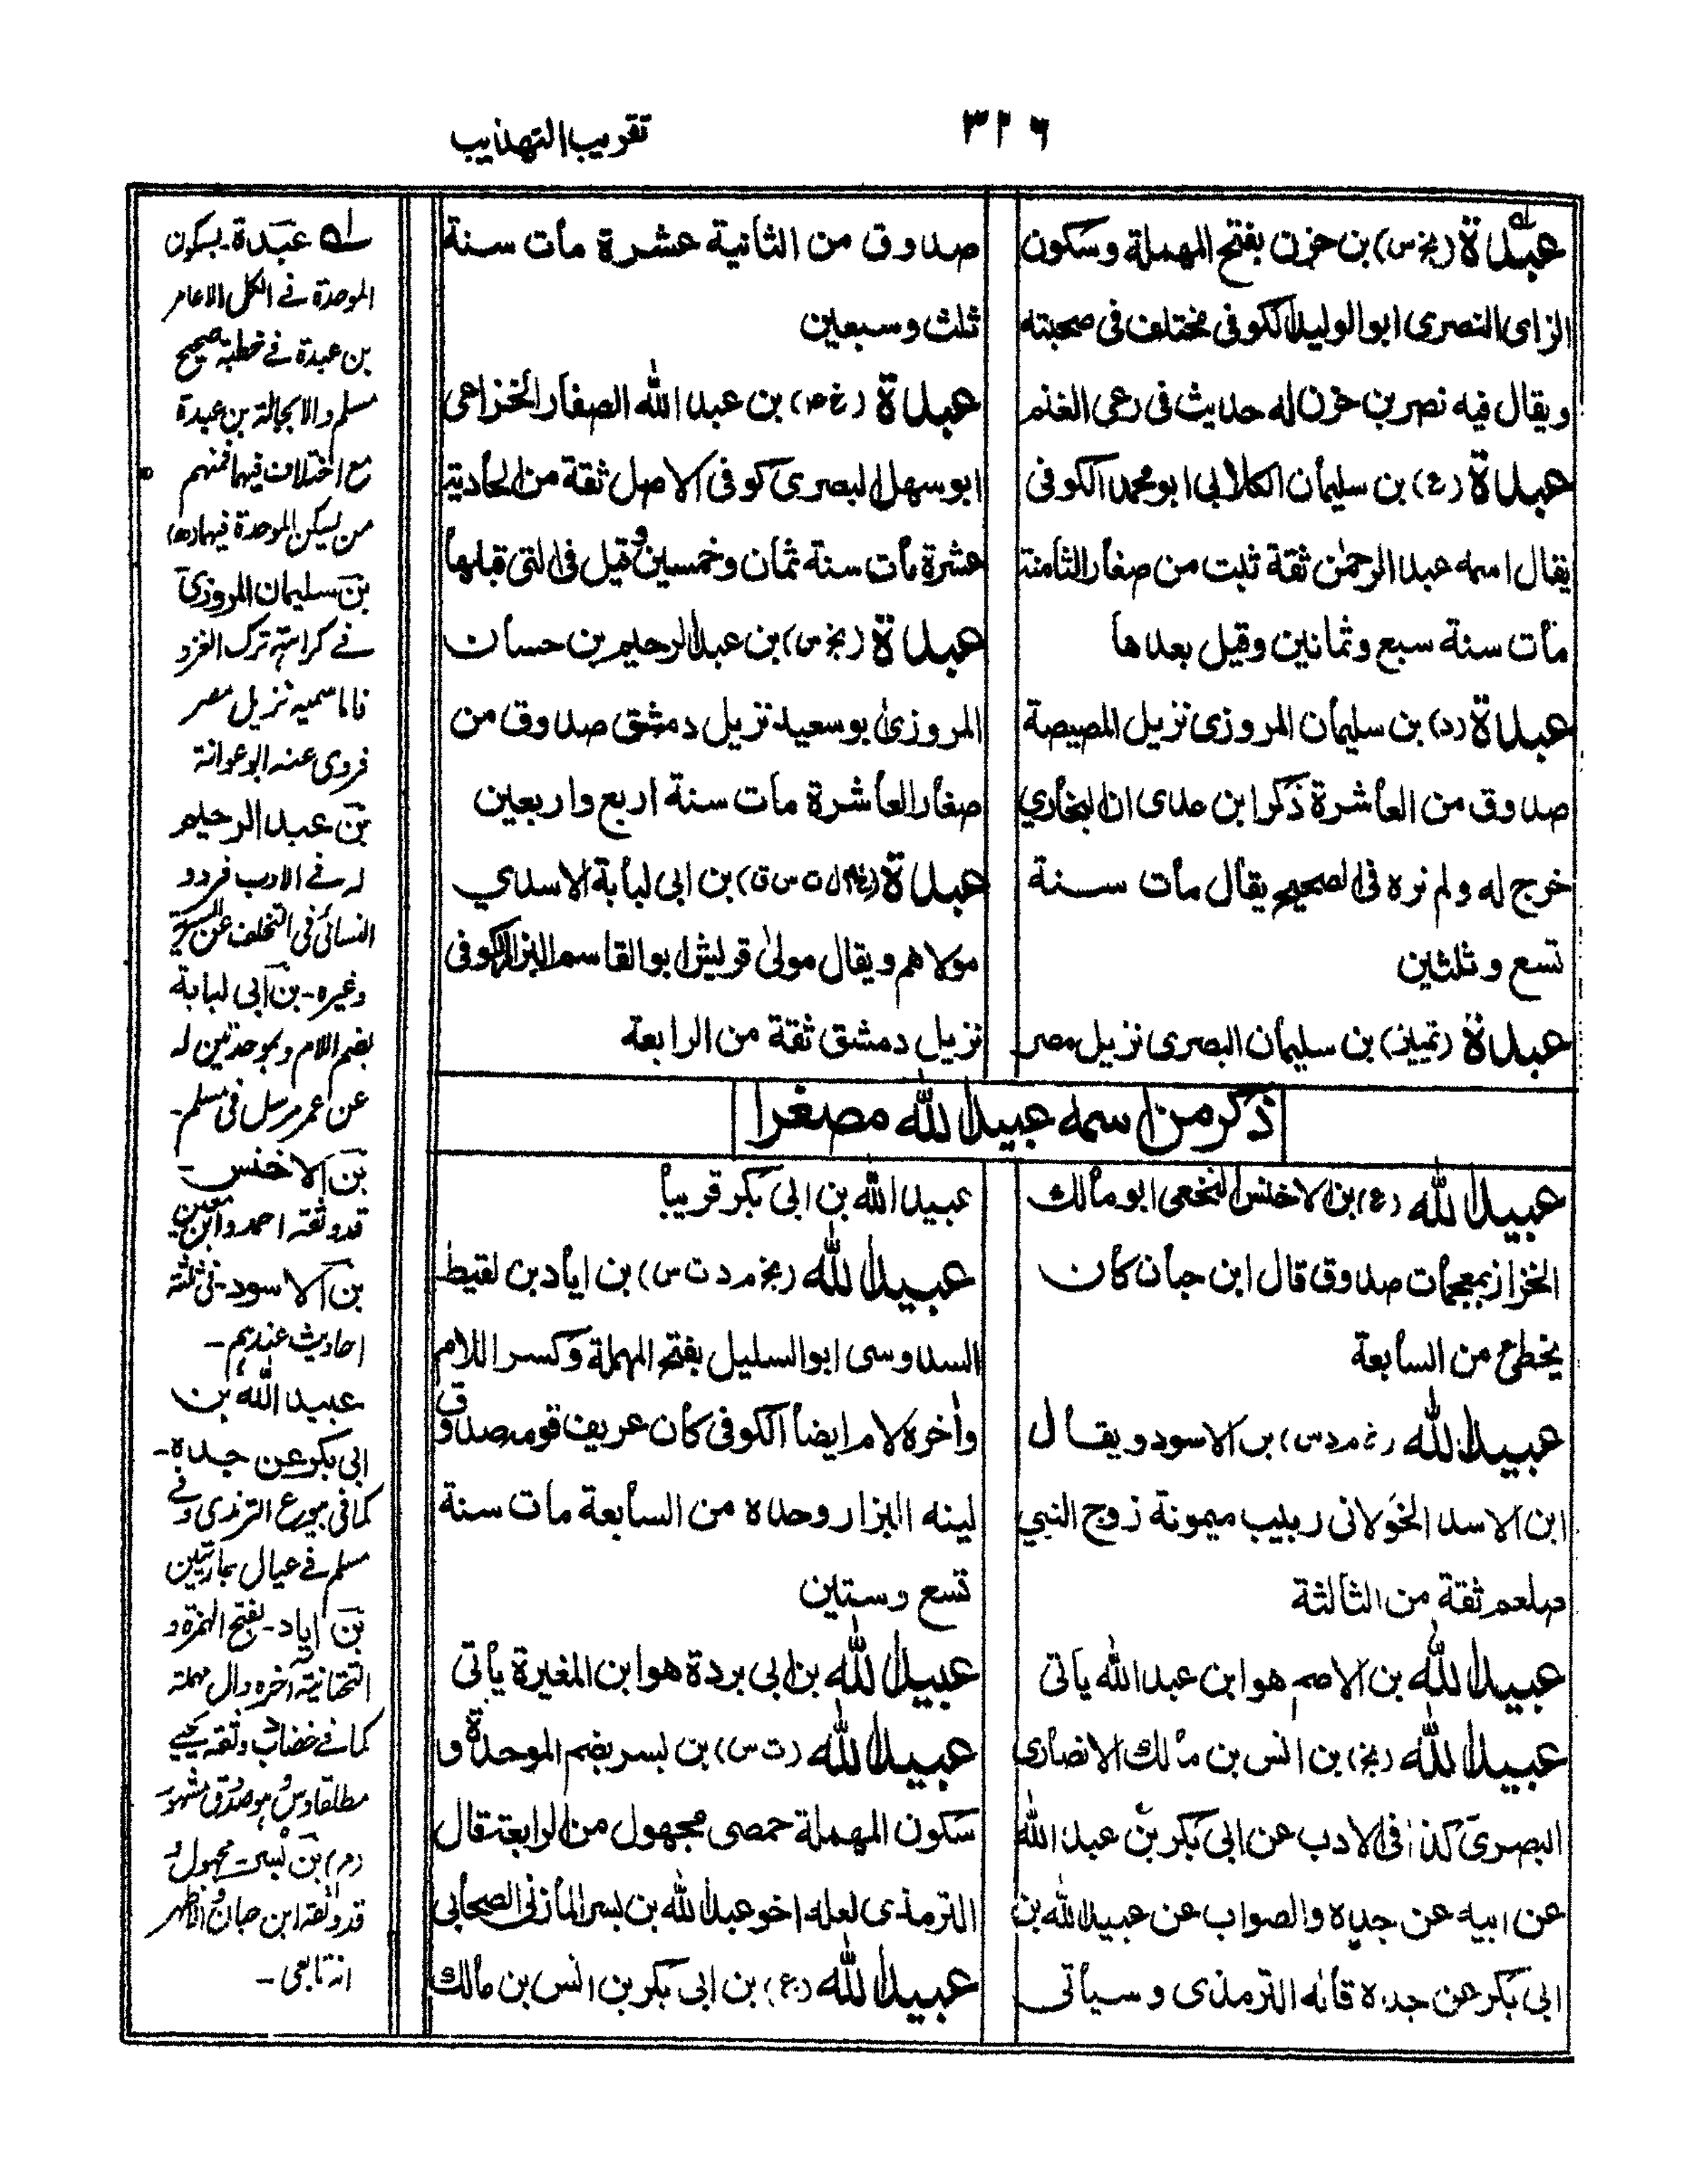 ٣٢٦
تقريب التهذيب
عبدة (بخ س) بن حزن بفتح المهملة وسكون
الزاى النصرى ابو الوليد الكوفى مختلف فى صحبته
ويقال فيه نصر بن حزن له حديث فى رعى الغنم
عبدة (ع) بن سليمان الكلابى ابو محمد الكوفى
يقال اسمه عبد الرحمٰن ثقة ثبت من صغار الثامنة
مات سنة سبع وثمانين وقيل بعدها
عبدة (د) بن سليمان المروزى نزيل المصيصة
صدوق من العاشرة ذكر ابن عدى ان البخاري
خرج له ولم نره فى الصحيح يقال مات سنة
تسع وثلثين
عبدة (تمييز) بن سليمان البصرى نزيل مصر
صدوق من الثانية عشرة مات سنة
ثلث وسبعين
عبدة (خ ٤) بن عبد الله الصفار الخزاعى
ابو سهل البصرى كوفى الاصل ثقة من الحادية
عشرة مات سنة ثمان وخمسين وقيل فى التى قبلها
عبدة (بخ س) بن عبد الرحيم بن حسان
المروزى ابو سعيد نزيل دمشق صدوق من
صغار العاشرة مات سنة اربع واربعين
عبدة (خ م ل ت س ق) بن ابى لبابة الاسدي
مولاهم ويقال مولىٰ قريش ابو القاسم البزاز الكوفى
نزيل دمشق ثقة من الرابعة
ذكر من اسمه عبيد الله مصغرا
عبيد الله (ع) بن الاخنس النخعى ابو مالك
الخزاز بمعجمات صدوق قال ابن حبان كان
يخطئ من السابعة
عبيد الله (خ م د س) بن الاسود ويقال
ابن الاسد الخولانى ربيب ميمونة زوج النبي
صلعم ثقة من الثالثة
عبيد الله بن الاصم هو ابن عبد الله يأتى
عبيد الله (بخ) بن انس بن مالك الانصارى
البصرى كذا فى الادب عن ابى بكر بن عبيد الله
عن ابيه عن جده والصواب عن عبيد الله بن
ابى بكر عن جده قاله الترمذى وسيأتى
عبيد الله بن ابى بكر قريبا
عبيد الله (بخ م د ت س) بن اياد بن لقيط
السدوسى ابو السليل بفتح المهملة وكسر اللام
وأخره لام ايضا الكوفى كان عريف قومه صدوق
لينه البزار وحده من السابعة مات سنة
تسع وستين
عبيد الله بن ابى بردة هو ابن المغيرة يأتى
عبيد الله (ت س) بن بسر بضم الموحدة و
سكون المهملة حمصى مجهول من الرابعة قال
الترمذى لعله اخو عبد الله بن بسر المازنى الصحابى
عبيد الله (ع) بن ابى بكر بن انس بن مالك
له عبدة۔ بسكون
الموحدة فے الكل الا عامر
بن عبدة فے خطبة صحيح
مسلم والا بجالة بن عبدة
مع اختلاف فيهما فمنهم
من يسكن الموحدة فيهما
بن سليمان المروزى
فے كراهية ترك الغزو
فاما سميه نزيل مصر
فروى عنه ابو عوانة
بن عبد الرحيم
له فے الادب فرد و
النسائى فى التخلف عن
وغيره۔ بن ابى لبابة
بضم اللام وبموحدتين له
عن عمر مرسل فى مسلم۔
بن الاخنس۔
قد وثقه احمد وابن معين
بن الاسود۔ فى ثلثة
احاديث عندهم۔
عبيد الله بن
ابى بكر عن جده۔
كما فى بيوع الترمذى وفے
مسلم فے عيال جاريتين
بن اياد۔ بفتح الهمزة و
التحتانية آخره دال مهملة
كما فے خضاب وثقه يحيے
مطلقا
بن بسر۔ مجهول و
قد وثقه ابن حبان والاظهر
انه تابعى۔